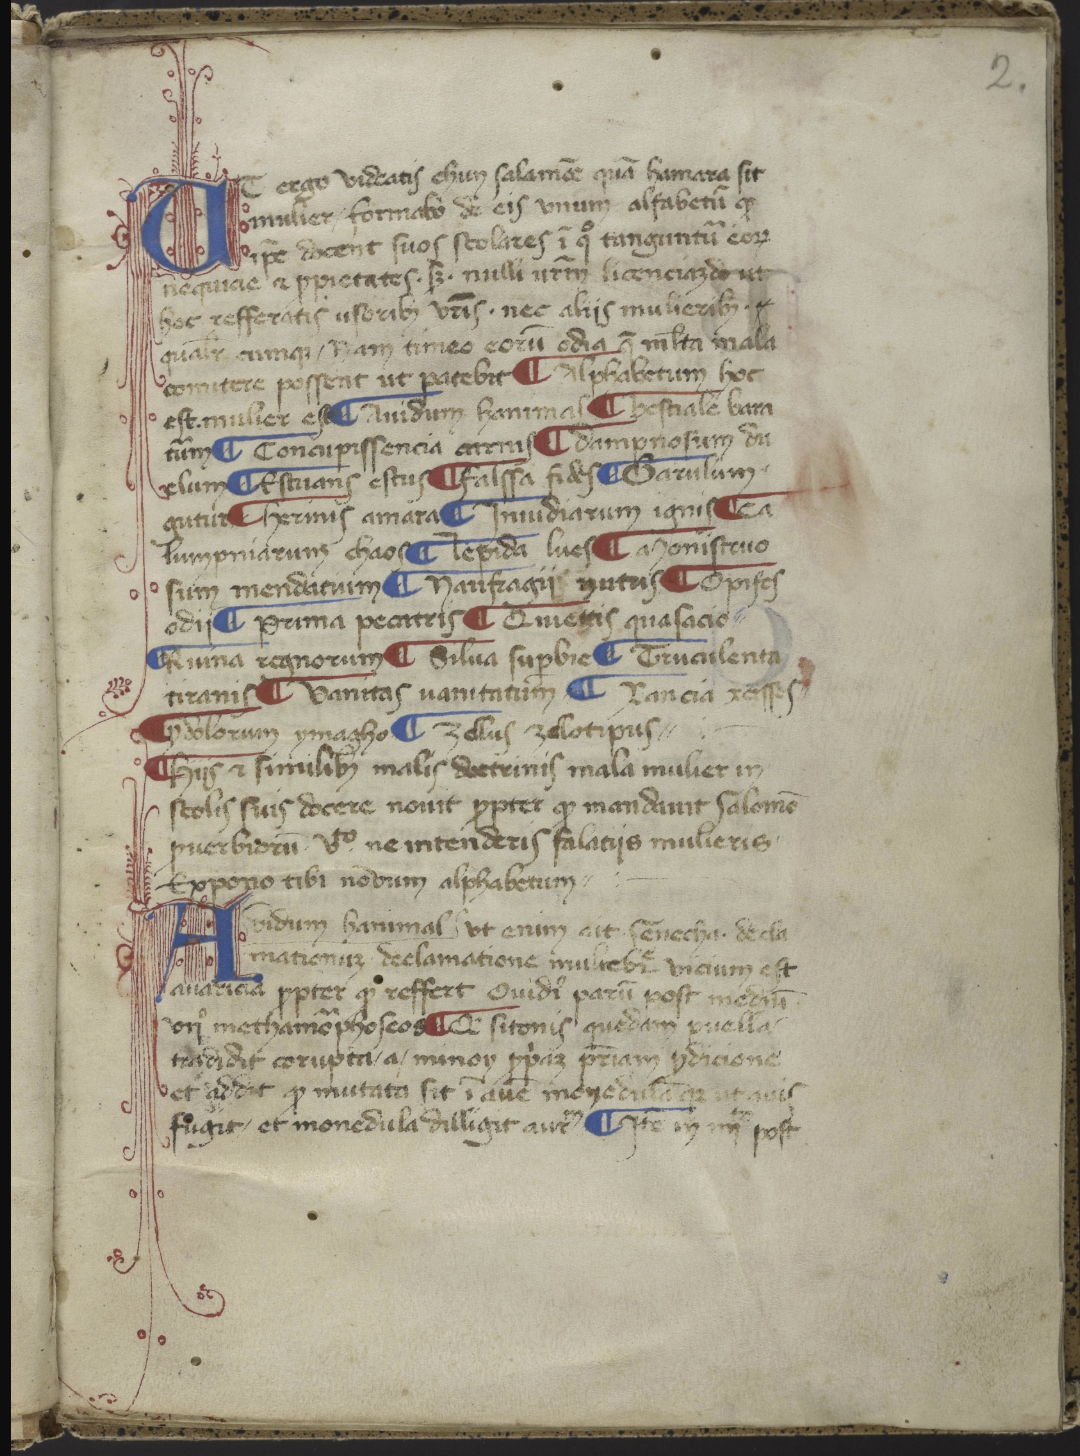 2.
UT ergo videatis chum salamōe quā hamara sit
mulier / formabo de eis vnum alfabetū qͥ
ipē docent suos scolares ī qͦ tanguntū eoꝝ
nequicie ⁊ ꝓpietates. sꝫ. nulli urm̄ licenciam do ut
hoc refferatis usoribꝫ vr̄is. nec aliis mulieribꝫ.
qualr̄ cumqꝫ / Nam timeo eorū odia q̄ ml̄ta mala
comitere possent ut patebit ¶ Alphabetum hoc
est. mulier est ¶ Auidum hanimal ¶ bestiale bara
trūm ¶ Concupissencia carnis ¶ dampnosum du
elum ¶ Estuans estus ¶ falssa fides ¶ Garulum
gutur ¶ herinis amara ¶ Inuidiarum ignis ¶ Ca
lumpniarum chaos ¶ lepida lues ¶ Monistruo
sum mendatium ¶ Naufragij nutris ¶ Opifes
odij ¶ Prima pecatris ¶ Quietis quasacio
¶ Ruina regnorum ¶ Silua superbie ¶ Truculenta
tiranis ¶ Vanitas uanitatum ¶ Xancia xersses
¶ ydolorum ymagho ¶ Zellus zelotipus
¶ Hijs ⁊ similibꝫ malis doctrinis mala mulier in
scolis suis docere nouit ꝓpter qͥ mandauit Salomō
ꝓuerbiorū. vͦ. ne intenderis falatijs mulieris.
Expono tibi nouum alphabetum
Avidum hanimal ut enim ait Senecha. decla
mationum declamatione muliebr̄ vicium est
auaricia ꝓpter qͦ reffert Ouidiꝰ parū post mediū
methamōphoseos ¶ Qͥ sitonis quedam puella
tradidit corupta / a / minoy ꝓpͥam pr̄iam ꝓdicione
et addit qͥ mutata sit ī auē monedulā ut auis
fugit / et monedula dilligit aurꝫ ¶ Itē in post